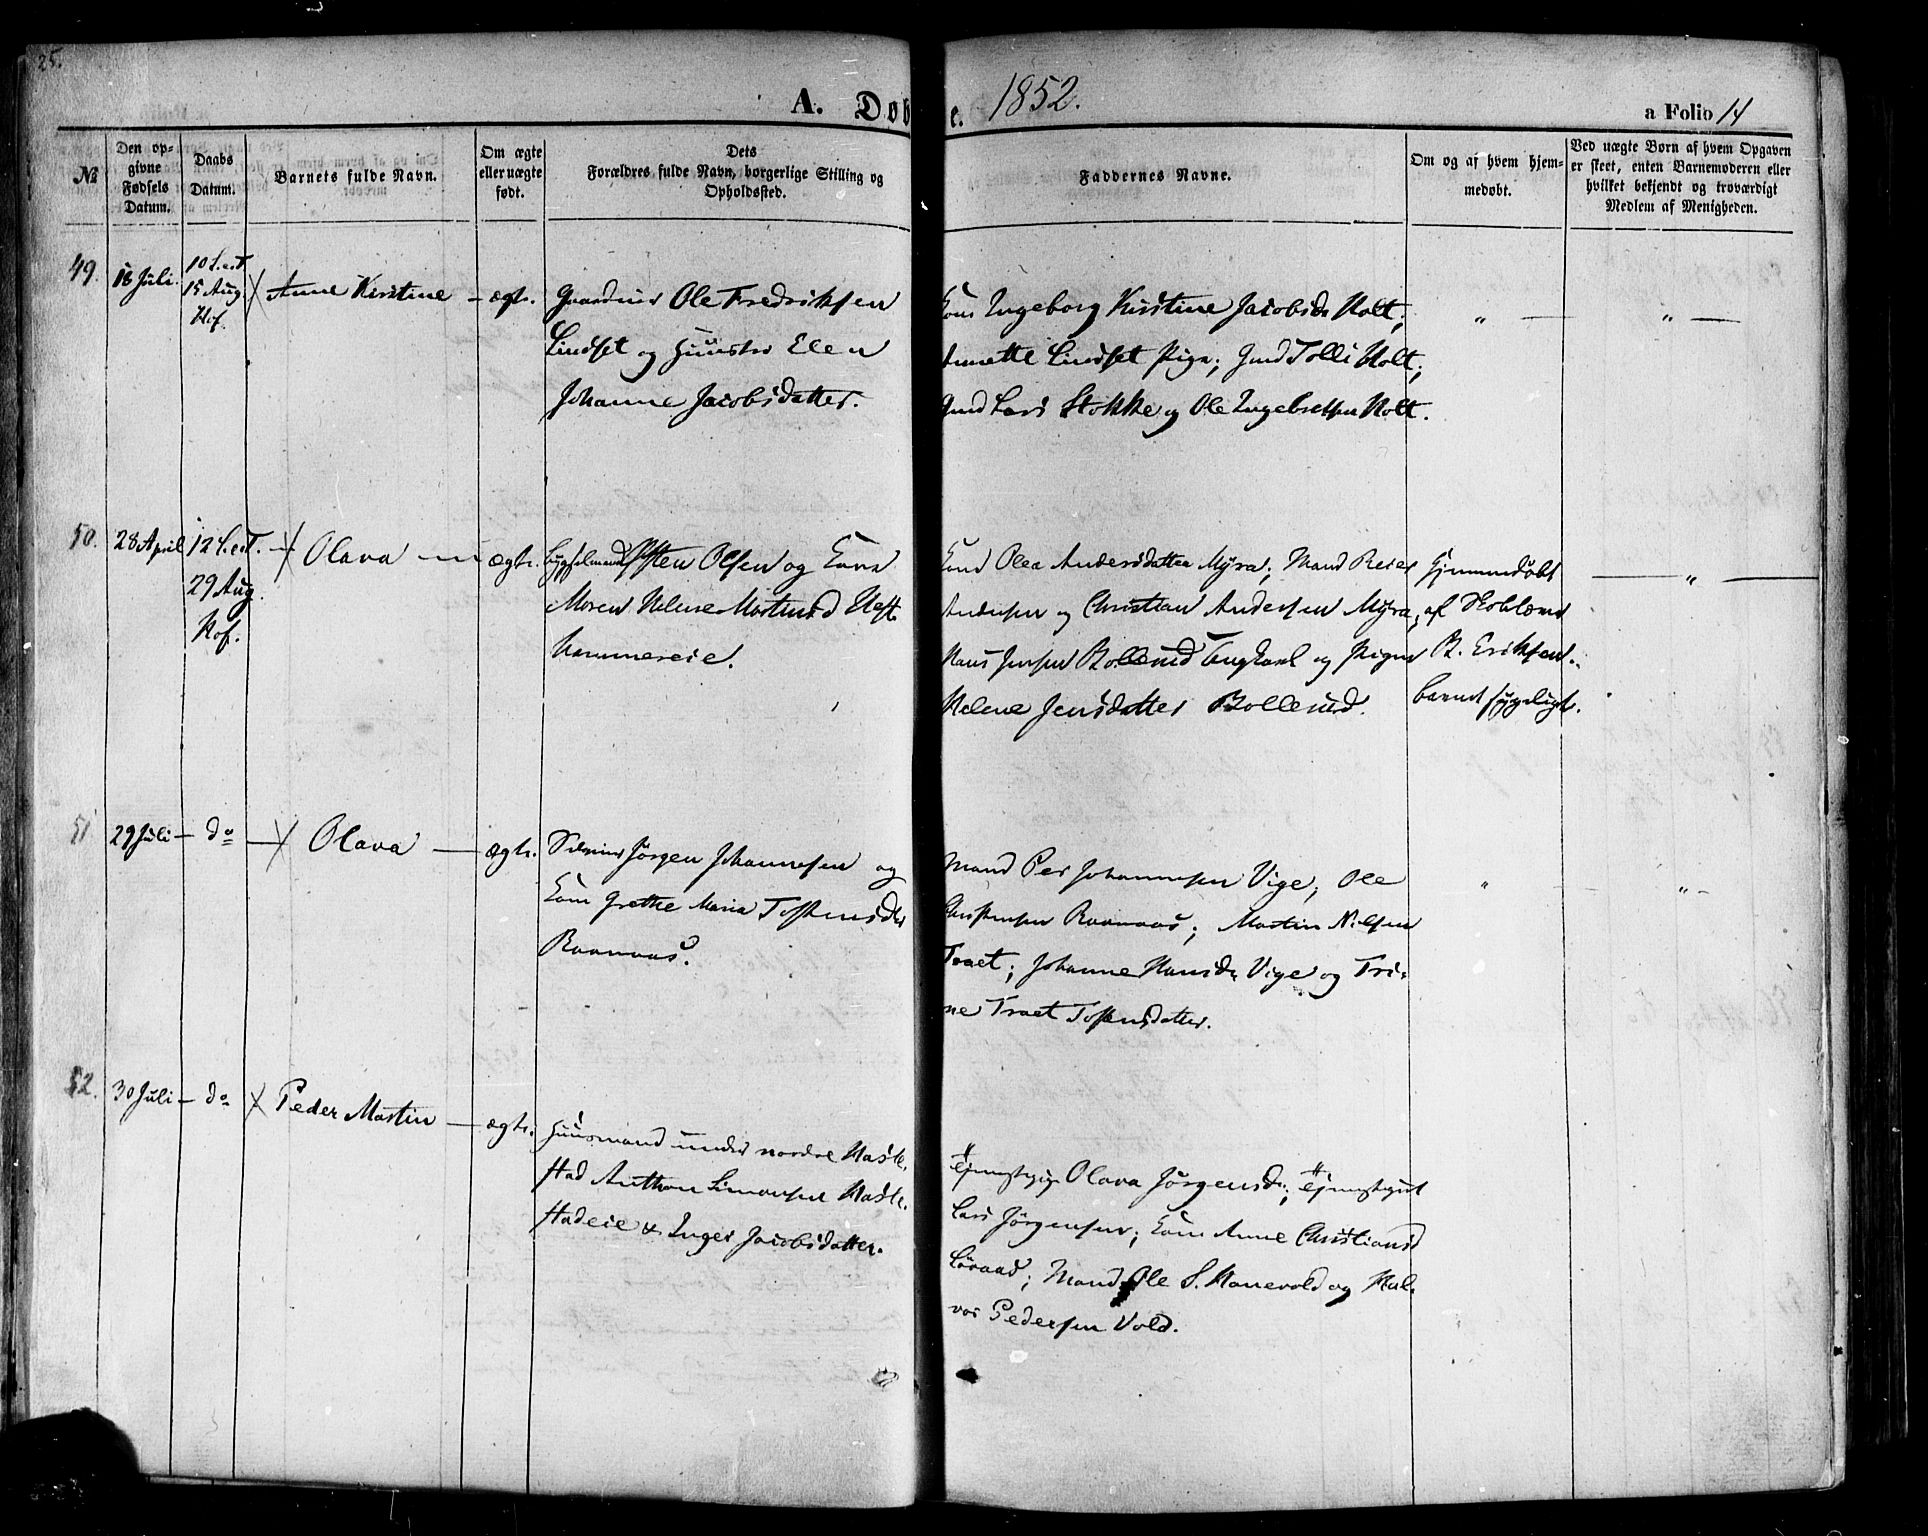 25.
A. Døb
e. 1852.
a Folio 14
№
Den op-
givne
Fødsels
Datum.
Daabs
Datum.
Barnets fulde Navn.
Om ægte
eller uægte
født.
Dets
Forældres fulde Navn, borgerlige Stilling og
Opholdssted.
Faddernes Navne.
Om og af hvem hjem-
medøbt.
Ved uægte Børn af hvem Opgaven
er skeet, enten Barnemoderen eller
hvilket bekjendt og troværdigt
Medlem af Menigheden.
49.
18 Juli.
15 Aug.
Hof.
Anne Kirstine
ægte.
Gaardmr Ole Fredriksen
Lindset og Huustr Elen
Johanne Jacobsdatter.
Kone Ingeborg Kirstine Jacobsdr Holt;
Annette Lindset Pige; Gmd Tolli Holt;
Gmd Lars Stokke og Ole Ingebretsen Holt.
50.
28 April
12 S. e. T.
29 Aug.
Hof.
Olava
ægte.
Bygselmand Osten Olsen og Kone
Maren Helene Martinsd Heste-
hammereie.
Kone Olea Andersdatter Myra; Mand Reier
Andersen og Christian Andersen Myra;
Hans Jensen Bollerud Ungkarl og Pigen
Helene Jensdatter Bollerud.
Hjemmedøbt
af Skolelærer
B. Eriksen.
barnet sygeligt.
51
29 Juli
do
Olava
ægte.
Selveier Jørgen Johannesen og
Kone Grethe Maria Tostensdtr
Raanaas.
Mand Per Johannesen Vige; Ole
Christensen Raanaas; Martin Nilsen
Traet; Johanne Hansdr Vige og Tri-
ne Traet Tostensdatter.
52.
30 Juli
do
Peder Martin
ægte.
Huusmand under nordre Hasle-
stad Anthon Simonsen Hasle-
stadeie & Inger Jacobsdatter.
Tjenestepige Olava Jørgensdr; Tjenestegut
Lars Jørgensen; Kone Anne Christiansd
Løvaas; Mand Ole S. Hanevold og Hal-
vor Pedersen Vold.